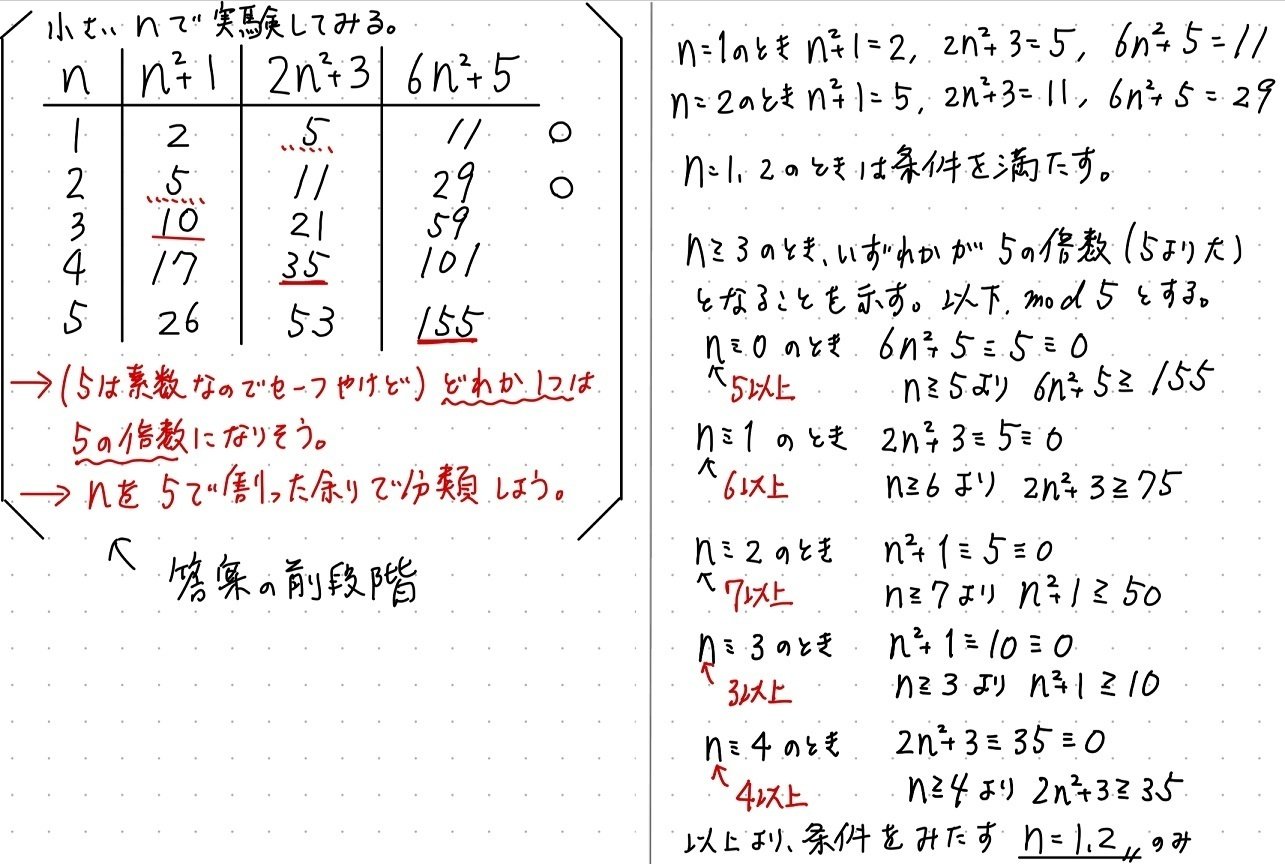 小さい nで実験してみる。
n n²+1 2n²+3 6n²+5
1 2 5 11 ○
2 5 11 29 ○
3 10 21 59
4 17 35 101
5 26 53 155
→(5は素数なのでセーフやけど) どれか1つは
5の倍数になりそう。
→ nを 5で割った余りで分類しよう。
↑ 答案の前段階
n=1のとき n²+1=2, 2n²+3=5, 6n²+5=11
n=2のとき n²+1=5, 2n²+3=11, 6n²+5=29
n=1, 2のときは条件を満たす。
n≧3のとき、いずれかが 5の倍数 (5より大)
となることを示す。以下, mod 5 とする。
n≡0 のとき 6n²+5≡5≡0
↑5以上 n≧5より 6n²+5≧155
n≡1 のとき 2n²+3≡5≡0
↑6以上 n≧6より 2n²+3≧75
n≡2 のとき n²+1≡5≡0
↑7以上 n≧7より n²+1≧50
n≡3 のとき n²+1≡10≡0
↑3以上 n≧3より n²+1≧10
n≡4 のとき 2n²+3≡35≡0
↑4以上 n≧4より 2n²+3≧35
以上より、条件をみたす n=1,2〃のみ